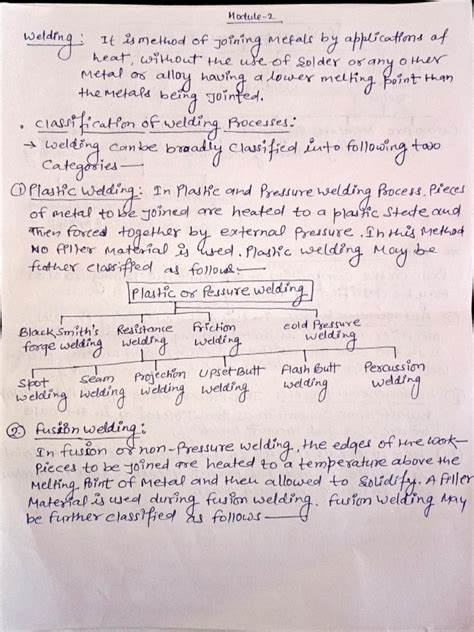 Module-2
Welding: It is method of joining metals by applications of
heat, without the use of solder or any other
Metal or alloy having a lower melting point than
the metals being jointed.
• Classification of welding Processes:
→ Welding can be broadly classified into following two
Categories —
① Plastic Welding: In Plastic and Pressure welding Process. Pieces
of metal to be joined are heated to a plastic State and
Then forced together by external Pressure. In this Method
No filler Material is used. Plastic welding May be
futher classified as follows: —
Plastic or Pessure welding
Black Smith's Resistance Friction cold Pressure
forge welding welding welding welding
Spot Seam Projection Upset Butt Flash Butt Percussion
welding welding welding welding welding welding
② fusion welding:
In fusion or non-Pressure welding, the edges of the work-
Pieces to be joined are heated to a temperature above the
Melting Point of Metal and then allowed to Solidify. A filler
Material is used during fusion welding. fusion welding May
be further classified as follows —